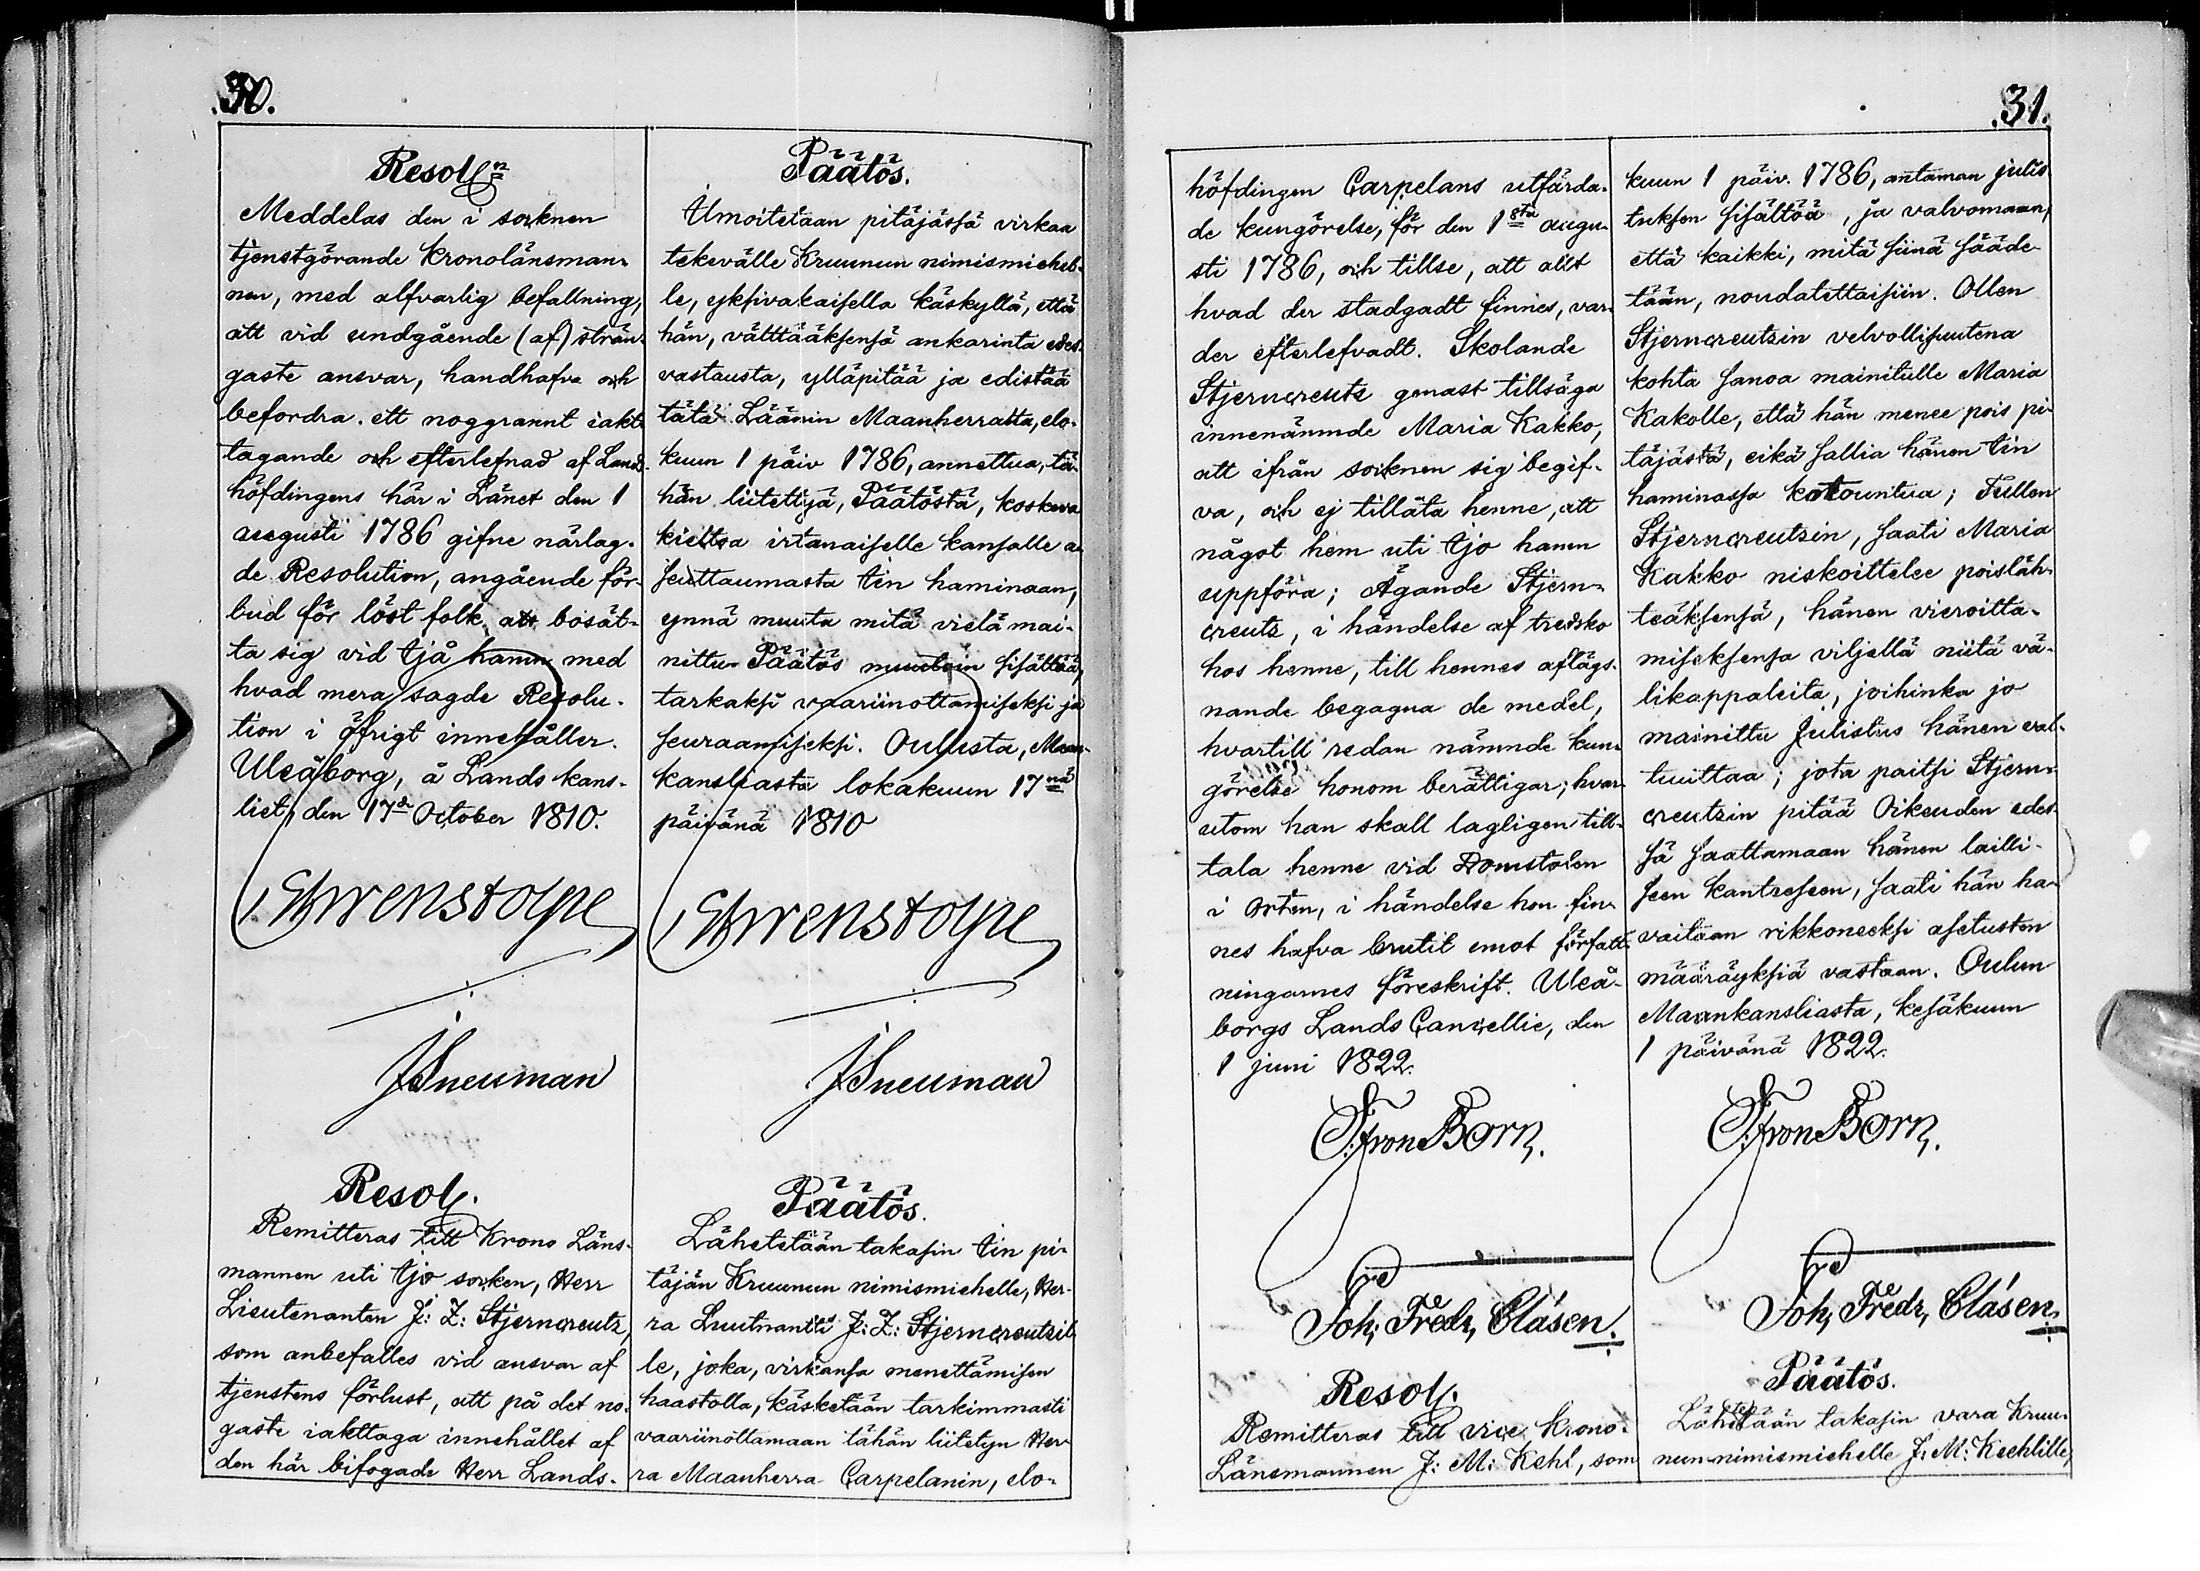 30.
Resol:n
Meddelas den i socknen
tjenstgörande kronolänsman-
nen, med alfvarlig befallning,
att vid undgående (af) strän-
gaste ansvar, handhafva och
befordra ett noggrannt iakt-
tagande och efterlefnad af Lands-
höfdingens här i Länet den 1
augusti 1786 gifne närlag-
de Resolution, angående för-
bud för löst folk att bosät-
ta sig vid Ijå hamn med
hvad mera sagde Resolu-
tion i öfrigt innehåller.
Uleåborg, å Lands kans-
liet, den 17de October 1810.
Ehrenstolpe
J Sneuman
Resol.
Remitteras till Krono Läns-
mannen uti Ijo socken, Herr
Lieutenanten J: Z: Stjerncreutz,
som anbefalles vid ansvar af
tjenstens förlust, att på det no-
gaste iakttaga innehållet af
den här bifogade Herr Lands-
Päätös.
Ilmoitetaan pitäjässä virkaa
tekevälle Kruunun nimismiehel-
le, yksivakaisella käskyllä, että
hän, välttääksensä ankarinta edes-
vastausta, ylläpitää ja edistää
tätä Läänin Maanherralta, elo-
kuun 1 päiv 1786, annettua, tä-
hän liitettyä, Päätöstä, koskeva
kieltoa irtanaiselle kansalle a-
settaumasta Iin haminaan,
ynnä muuta mitä vielä mai-
nittu Päätös muutoin sisältää,
tarkaksi vaariinottamiseksi ja
seuraamiseksi. Oulusta, Maan-
kansliasta lokakuun 17nä
päivänä 1810
Ehrenstolpe
J Sneuman
Päätös.
Lähetetään takasin Iin pi-
täjän Kruunun nimismiehelle, Her-
ra Luutnantti J: Z: Stjerncreutzil-
le, joka, virkansa menettämisen
haastolla, käsketään tarkimmasti
vaariinottamaan tähän liitetyn Her-
ra Maanherra Carpelanin, elo-
31.
höfdingen Carpelans utfärda-
de kungörelse, för den 1sta augu-
sti 1786, och tillse, att allt
hvad der stadgadt finnes, var-
der efterlefvadt. Skolande
Stjerncreutz genast tillsäga
innenämnde Maria Kakko,
att ifrån socknen sig begif-
va, och ej tillåta henne, att
något hem uti Ijo hamn
uppföra; Ägande Stjern-
creutz, i händelse af tredsko
hos henne, till hennes aflägs-
nande begagna de medel,
hvartill redan nämnde kun-
görelse honom berättigar; hvar-
utom han skall lagligen till-
tala henne vid Domstolen
i orten, i händelse hon fin-
nes hafva brutit emot författ-
ningarnes föreskrift. Uleå-
borgs Lands Cancellie, den
1 juni 1822.
S: F: von Born.
Joh. Fredr. Clásen.
Resol.
Remitteras till vice Krono-
Länsmannen J: M: Kehl, som
kuun 1 päiv. 1786, antaman julis
tuksen sisältöä, ja valvomaan,
että kaikki, mitä siinä sääde-
tään, noudatettaisiin. Ollen
Stjerncreutzin velvollisuutena
kohta sanoa mainitulle Maria
Kakolle, että hän menee pois pi-
täjästä, eikä sallia hänen Iin
haminassa kotountua; Tullen
Stjerncreutzin, jaati Maria
Kakko niskoittelee poisläh-
teäksensä, hänen vieroitta-
miseksensa viljellä niitä vä-
likappaleita, joihinka jo
mainittu Julistus hänen val-
tuuttaa; jota paitsi Stjern-
creutzin pitää Oikeuden edes-
sä saattamaan hänen lailli-
seen kantreseen, jaati hän ha-
vaitaan rikkoneeksi asetusten
määräyksiä vastaan. Oulun
Maankansliasta, kesäkuun
1 päivänä 1822.
S: F: von Born.
Joh. Fredr. Clásen.
Päätös.
Lähetetään takasin vara Kruu-
nun nimismiehelle J: M: Keehlille,